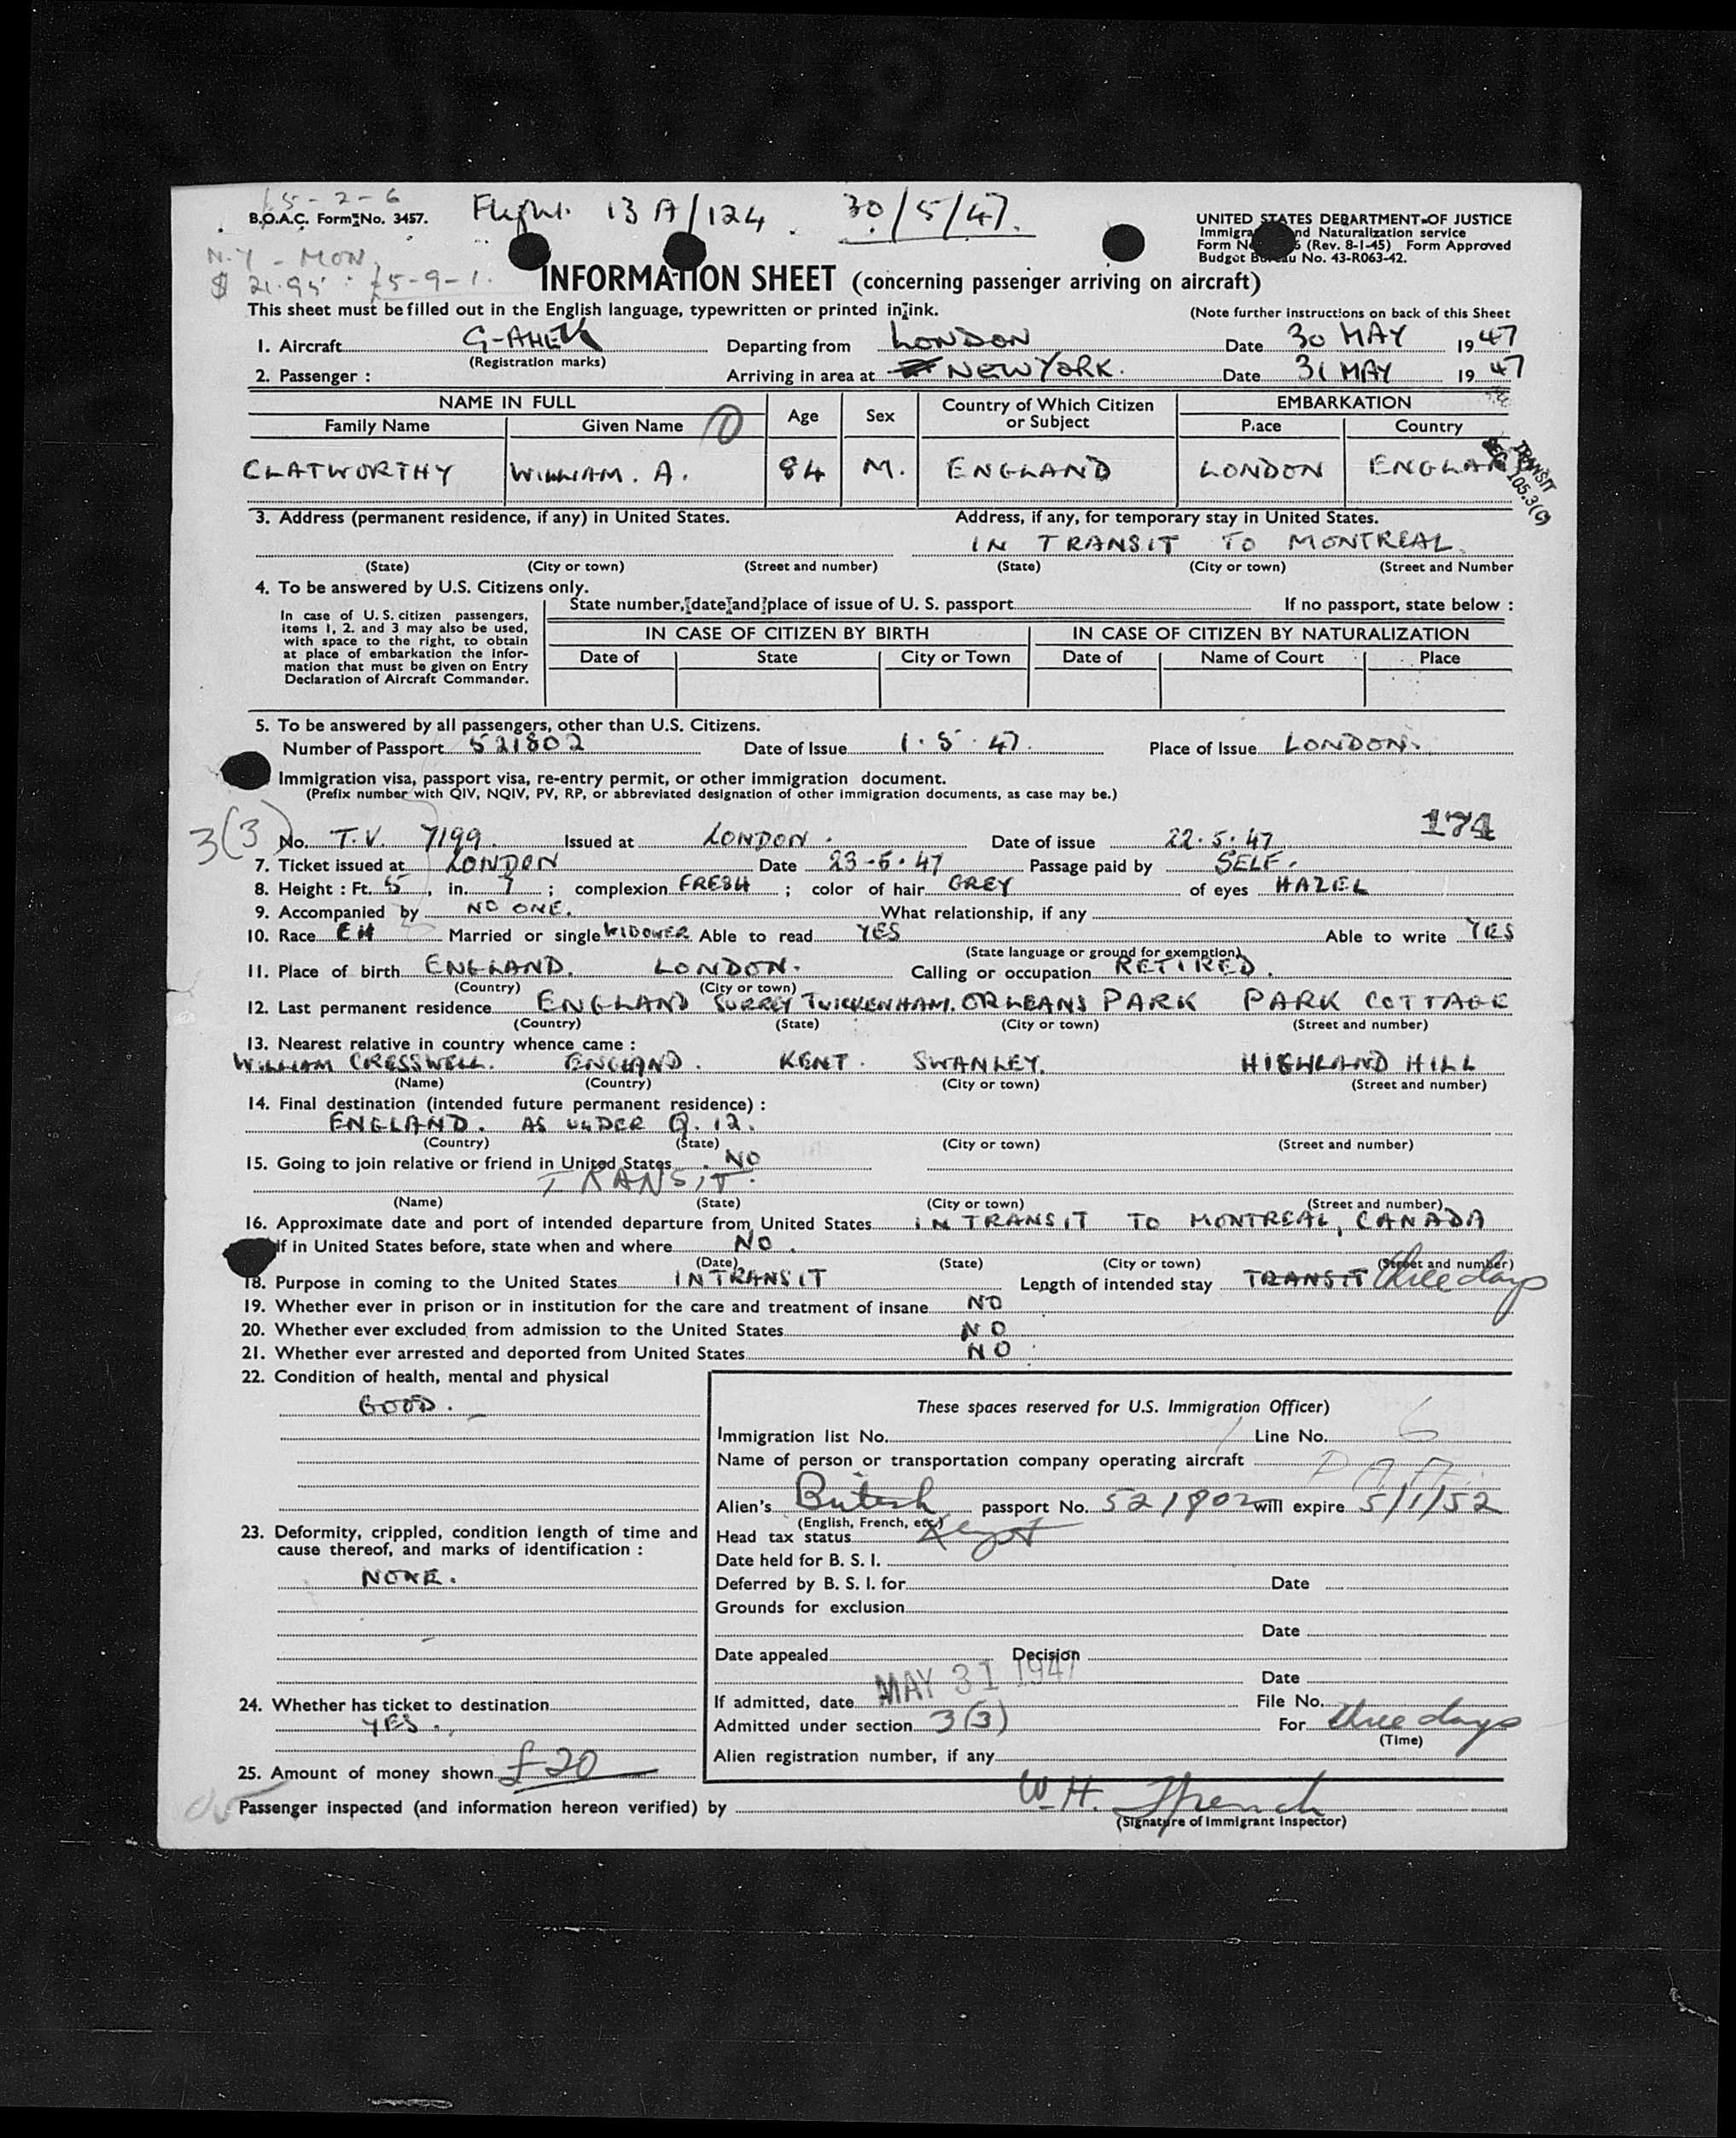 5-2-6
B.O.A.C. Form No. 3457. Flight. 13 A/124. 30/5/47.
UNITED STATES DEPARTMENT OF JUSTICE
Immigra nd Naturalization service
N.Y - MON.
Form No 6 (Rev. 8-1-45) Form Approved
Budget Bureau No. 43-R063-42.
$ 21.95 : £5-9-1.
INFORMATION SHEET (concerning passenger arriving on aircraft)
This sheet must be filled out in the English language, typewritten or printed in ink. (Note further instructions on back of this Sheet
1. Aircraft G-AHEK Departing from LONDON Date 30 MAY 1947
(Registration marks)
2. Passenger : Arriving in area at NEW YORK. Date 31 MAY 1947
NAME IN FULL Age Sex Country of Which Citizen or Subject EMBARKATION
Family Name Given Name Place Country
CLATWORTHY WILLIAM. A. 84 M. ENGLAND LONDON ENGLAND
TRANSIT
SEC 105.3(C)
3. Address (permanent residence, if any) in United States. Address, if any, for temporary stay in United States.
IN TRANSIT TO MONTREAL.
(State) (City or town) (Street and number) (State) (City or town) (Street and Number
4. To be answered by U.S. Citizens only.
In case of U.S. citizen passengers, items 1, 2, and 3 may also be used, with space to the right, to obtain at place of embarkation the information that must be given on Entry Declaration of Aircraft Commander.
State number, date and place of issue of U. S. passport If no passport, state below :
IN CASE OF CITIZEN BY BIRTH IN CASE OF CITIZEN BY NATURALIZATION
Date of State City or Town Date of Name of Court Place
5. To be answered by all passengers, other than U.S. Citizens.
Number of Passport 521802 Date of Issue 1.5.47. Place of Issue LONDON.
Immigration visa, passport visa, re-entry permit, or other immigration document.
(Prefix number with QIV, NQIV, PV, RP, or abbreviated designation of other immigration documents, as case may be.)
3(3) 174
No. T.V. 7199. Issued at LONDON. Date of issue 22.5.47
7. Ticket issued at LONDON Date 23-5-47 Passage paid by SELF.
8. Height : Ft. 5, in. 7 ; complexion FRESH ; color of hair GREY of eyes HAZEL
9. Accompanied by NO ONE. What relationship, if any
10. Race EH Married or single WIDOWER Able to read YES Able to write YES
(State language or ground for exemption)
11. Place of birth ENGLAND. LONDON. Calling or occupation RETIRED.
(Country) (City or town)
12. Last permanent residence ENGLAND SURREY TWICKENHAM. ORLEANS PARK PARK COTTAGE
(Country) (State) (City or town) (Street and number)
13. Nearest relative in country whence came :
WILLIAM CRESSWELL. ENGLAND. KENT. SWANLEY. HIGHLAND HILL
(Name) (Country) (City or town) (Street and number)
14. Final destination (intended future permanent residence) :
ENGLAND. AS UNDER Q.12.
(Country) (State) (City or town) (Street and number)
15. Going to join relative or friend in United States NO
TRANSIT.
(Name) (State) (City or town) (Street and number)
16. Approximate date and port of intended departure from United States IN TRANSIT TO MONTREAL, CANADA
If in United States before, state when and where NO.
(Date) (State) (City or town) (Street and number)
18. Purpose in coming to the United States IN TRANSIT Length of intended stay TRANSIT three days
19. Whether ever in prison or in institution for the care and treatment of insane NO
20. Whether ever excluded from admission to the United States NO
21. Whether ever arrested and deported from United States NO
22. Condition of health, mental and physical
GOOD.
23. Deformity, crippled, condition length of time and cause thereof, and marks of identification :
NONE.
24. Whether has ticket to destination
YES.
25. Amount of money shown £20
These spaces reserved for U.S. Immigration Officer)
Immigration list No. Line No. 6
Name of person or transportation company operating aircraft
Alien's British passport No. 521802 will expire 5/1/52
(English, French, etc.)
Head tax status
Date held for B. S. I.
Deferred by B. S. I. for Date
Grounds for exclusion
Date
Date appealed Decision
Date
If admitted, date MAY 31 1947 File No.
Admitted under section 3(3) For three days
(Time)
Alien registration number, if any
Passenger inspected (and information hereon verified) by W.H.
(Signature of Immigrant Inspector)